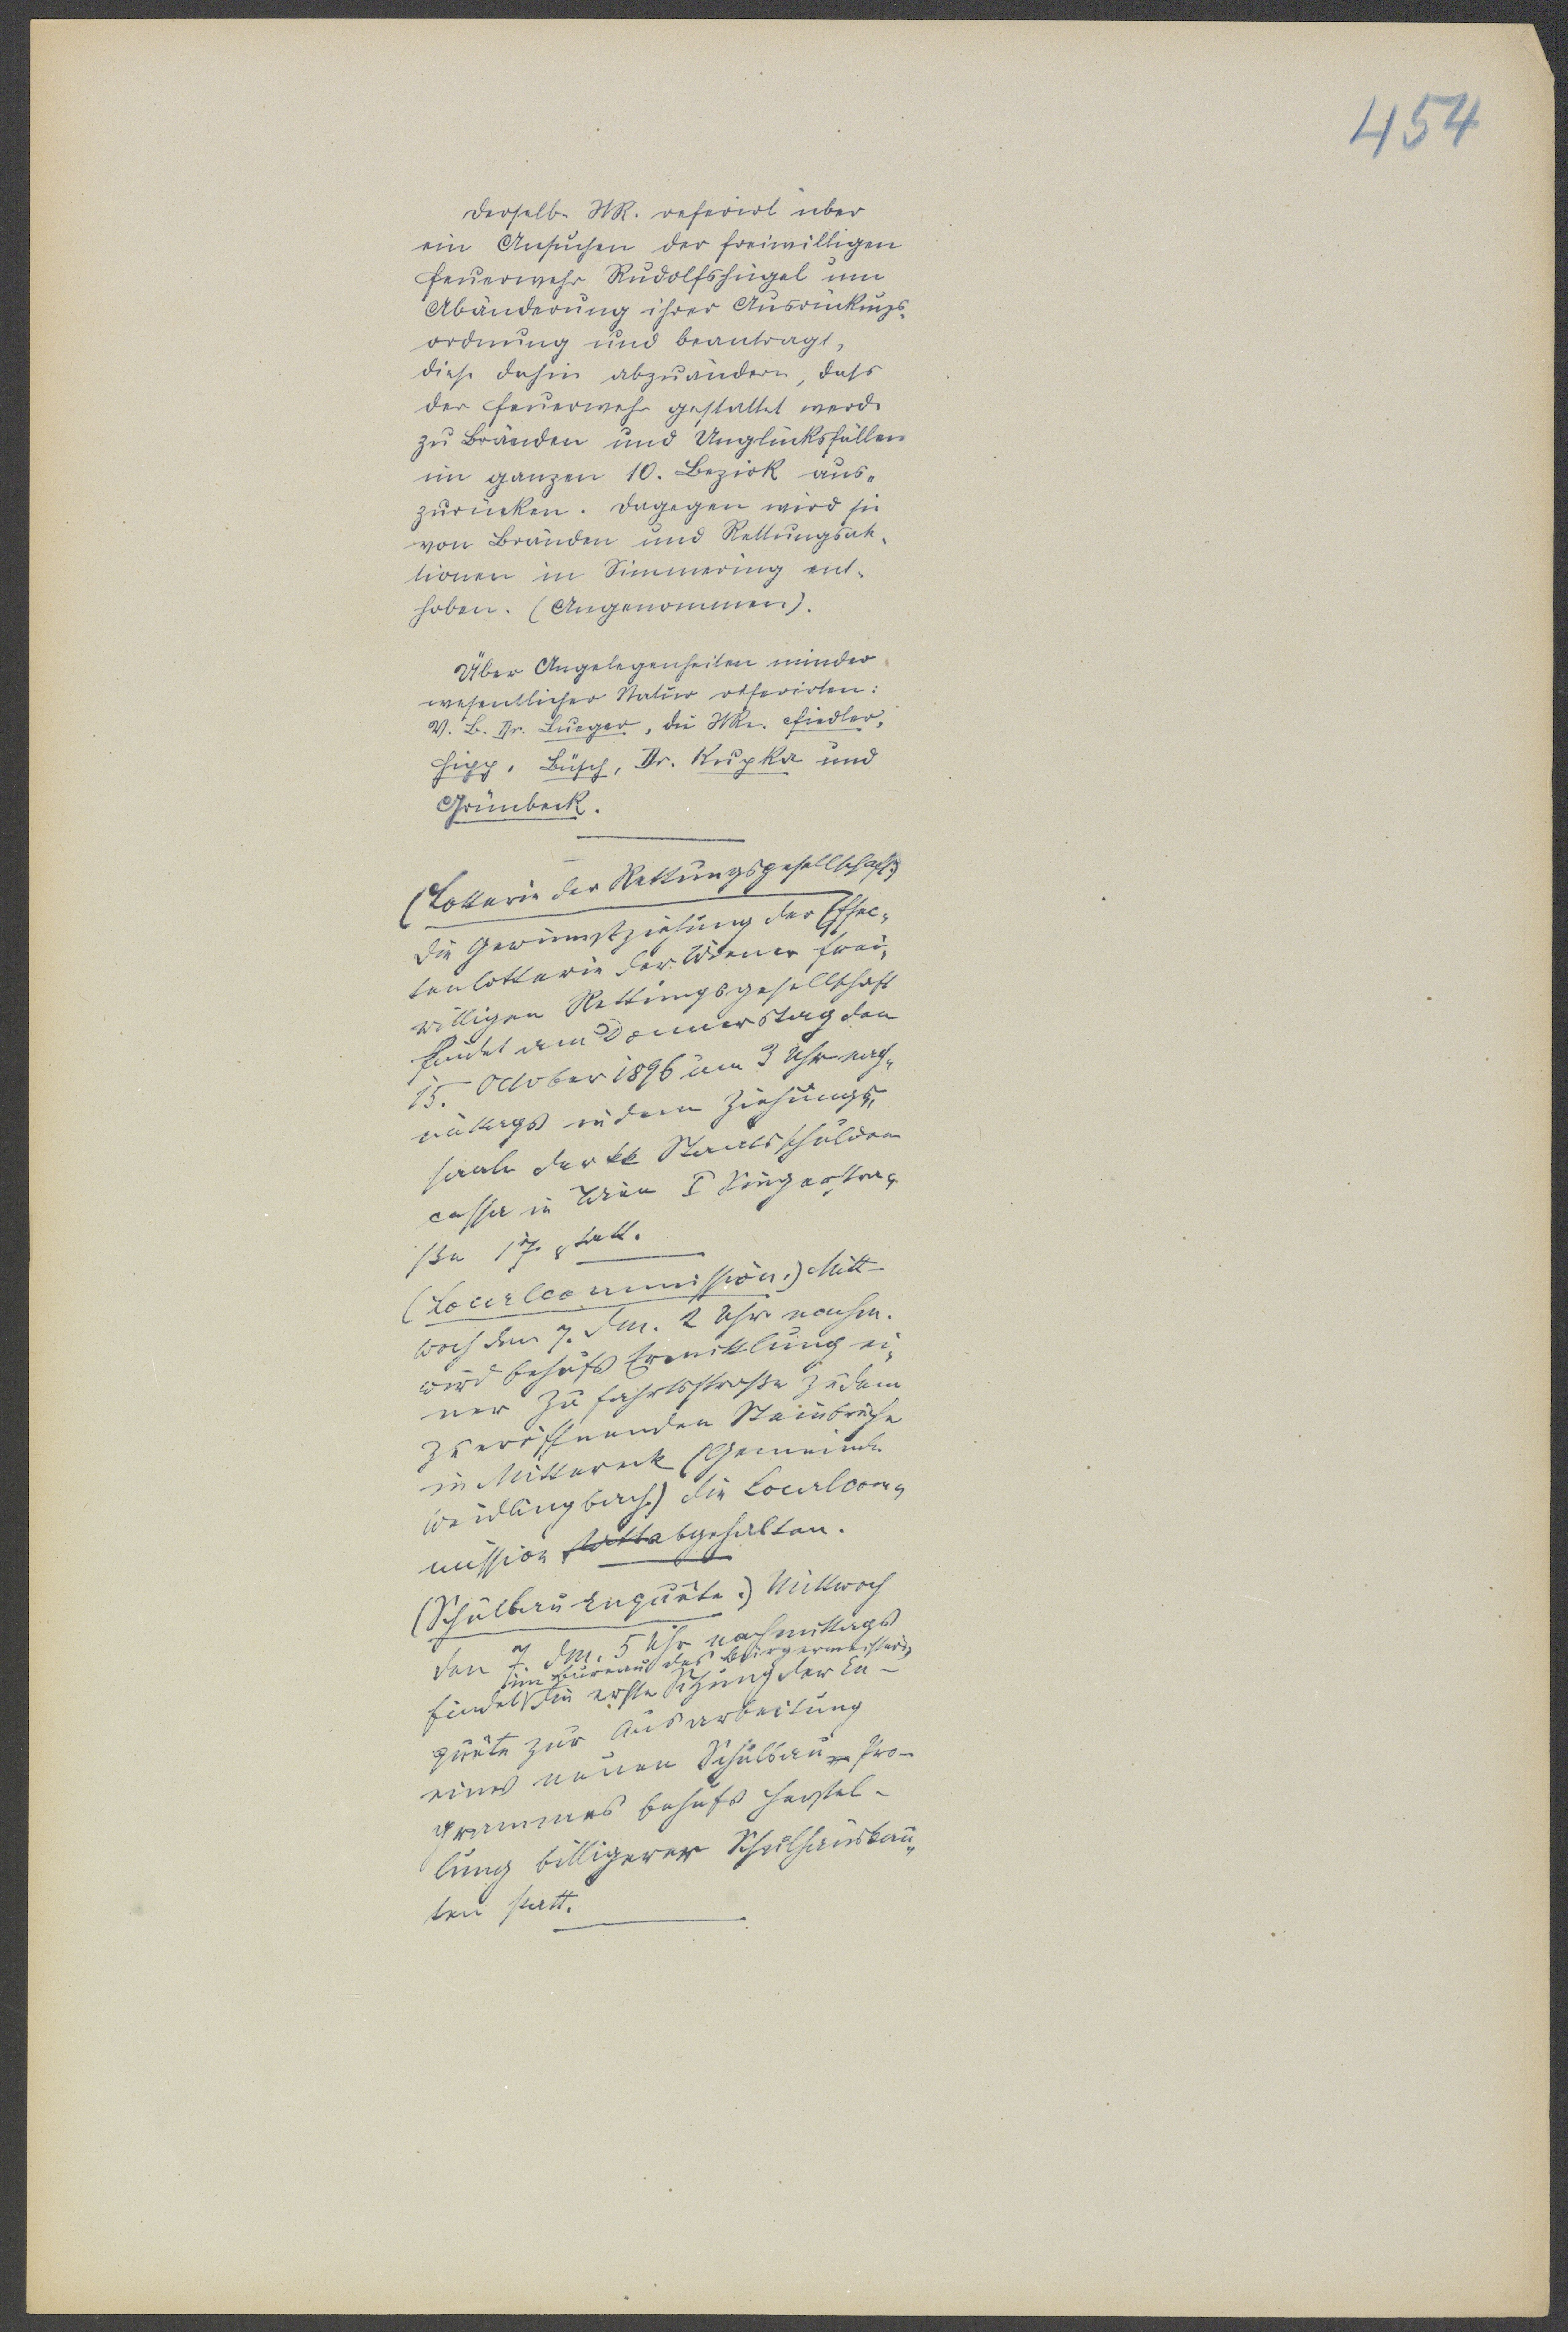 454
Derselbe StR. referirt über
ein Ansuchen der freiwilligen
Feuerwehr Rudolfshügel um
Abänderung ihrer Ausrückungs-
ordnung und beantragt,
diese dahin abzuändern, dass
der Feuerwehr gestattet werde
zu Bränden und Unglücksfällen
im ganzen 10. Bezirk aus-
zurücken. Dagegen wird sie
von Bränden und Rettungsak-
tionen in Simmering ent-
hoben. (Angenommen).
Über Angelegenheiten minder
wesentlicher Natur referirten:
V. B. Dr. Lueger, die StRe. Fiedler,
Hipp, Büsch, Dr. Krupka und
Grünbeck.
(Lotterie der Rettungsgesellschaft.)
Die Gewinnstziehung der Effec-
tenlotterie der Wiener frei-
willigen Rettungsgesellschaft
findet am Donnerstag den
15. October 1896 um 3 Uhr nach-
mittags in dem Ziehungs-
saale der kk Staatsschulden
cassa in Wien I Singerstra-
ße 17 statt.
(Localcommission.) Mitt-
woch den 7. dM. 2 Uhr nachm.
wird behufs Ermittlung ei-
ner Zufahrtsstraße zu dem
zu eröffnenden Steinbruche
in Mittereck (Gemeinde
Weidlingbach) die Localcom-
mission statt abgehalten.
(Schulbau-Enquête.) Mittwoch
den 7. dM. 5 Uhr nachmittags
im Bureau des Bürgermeisters
findet die erste Sitzung der En-
quête zur Ausarbeitung
eines neuen Schulbau-Pro-
grammes behufs Herstel-
lung billigerer Schulhausbau-
ten statt.